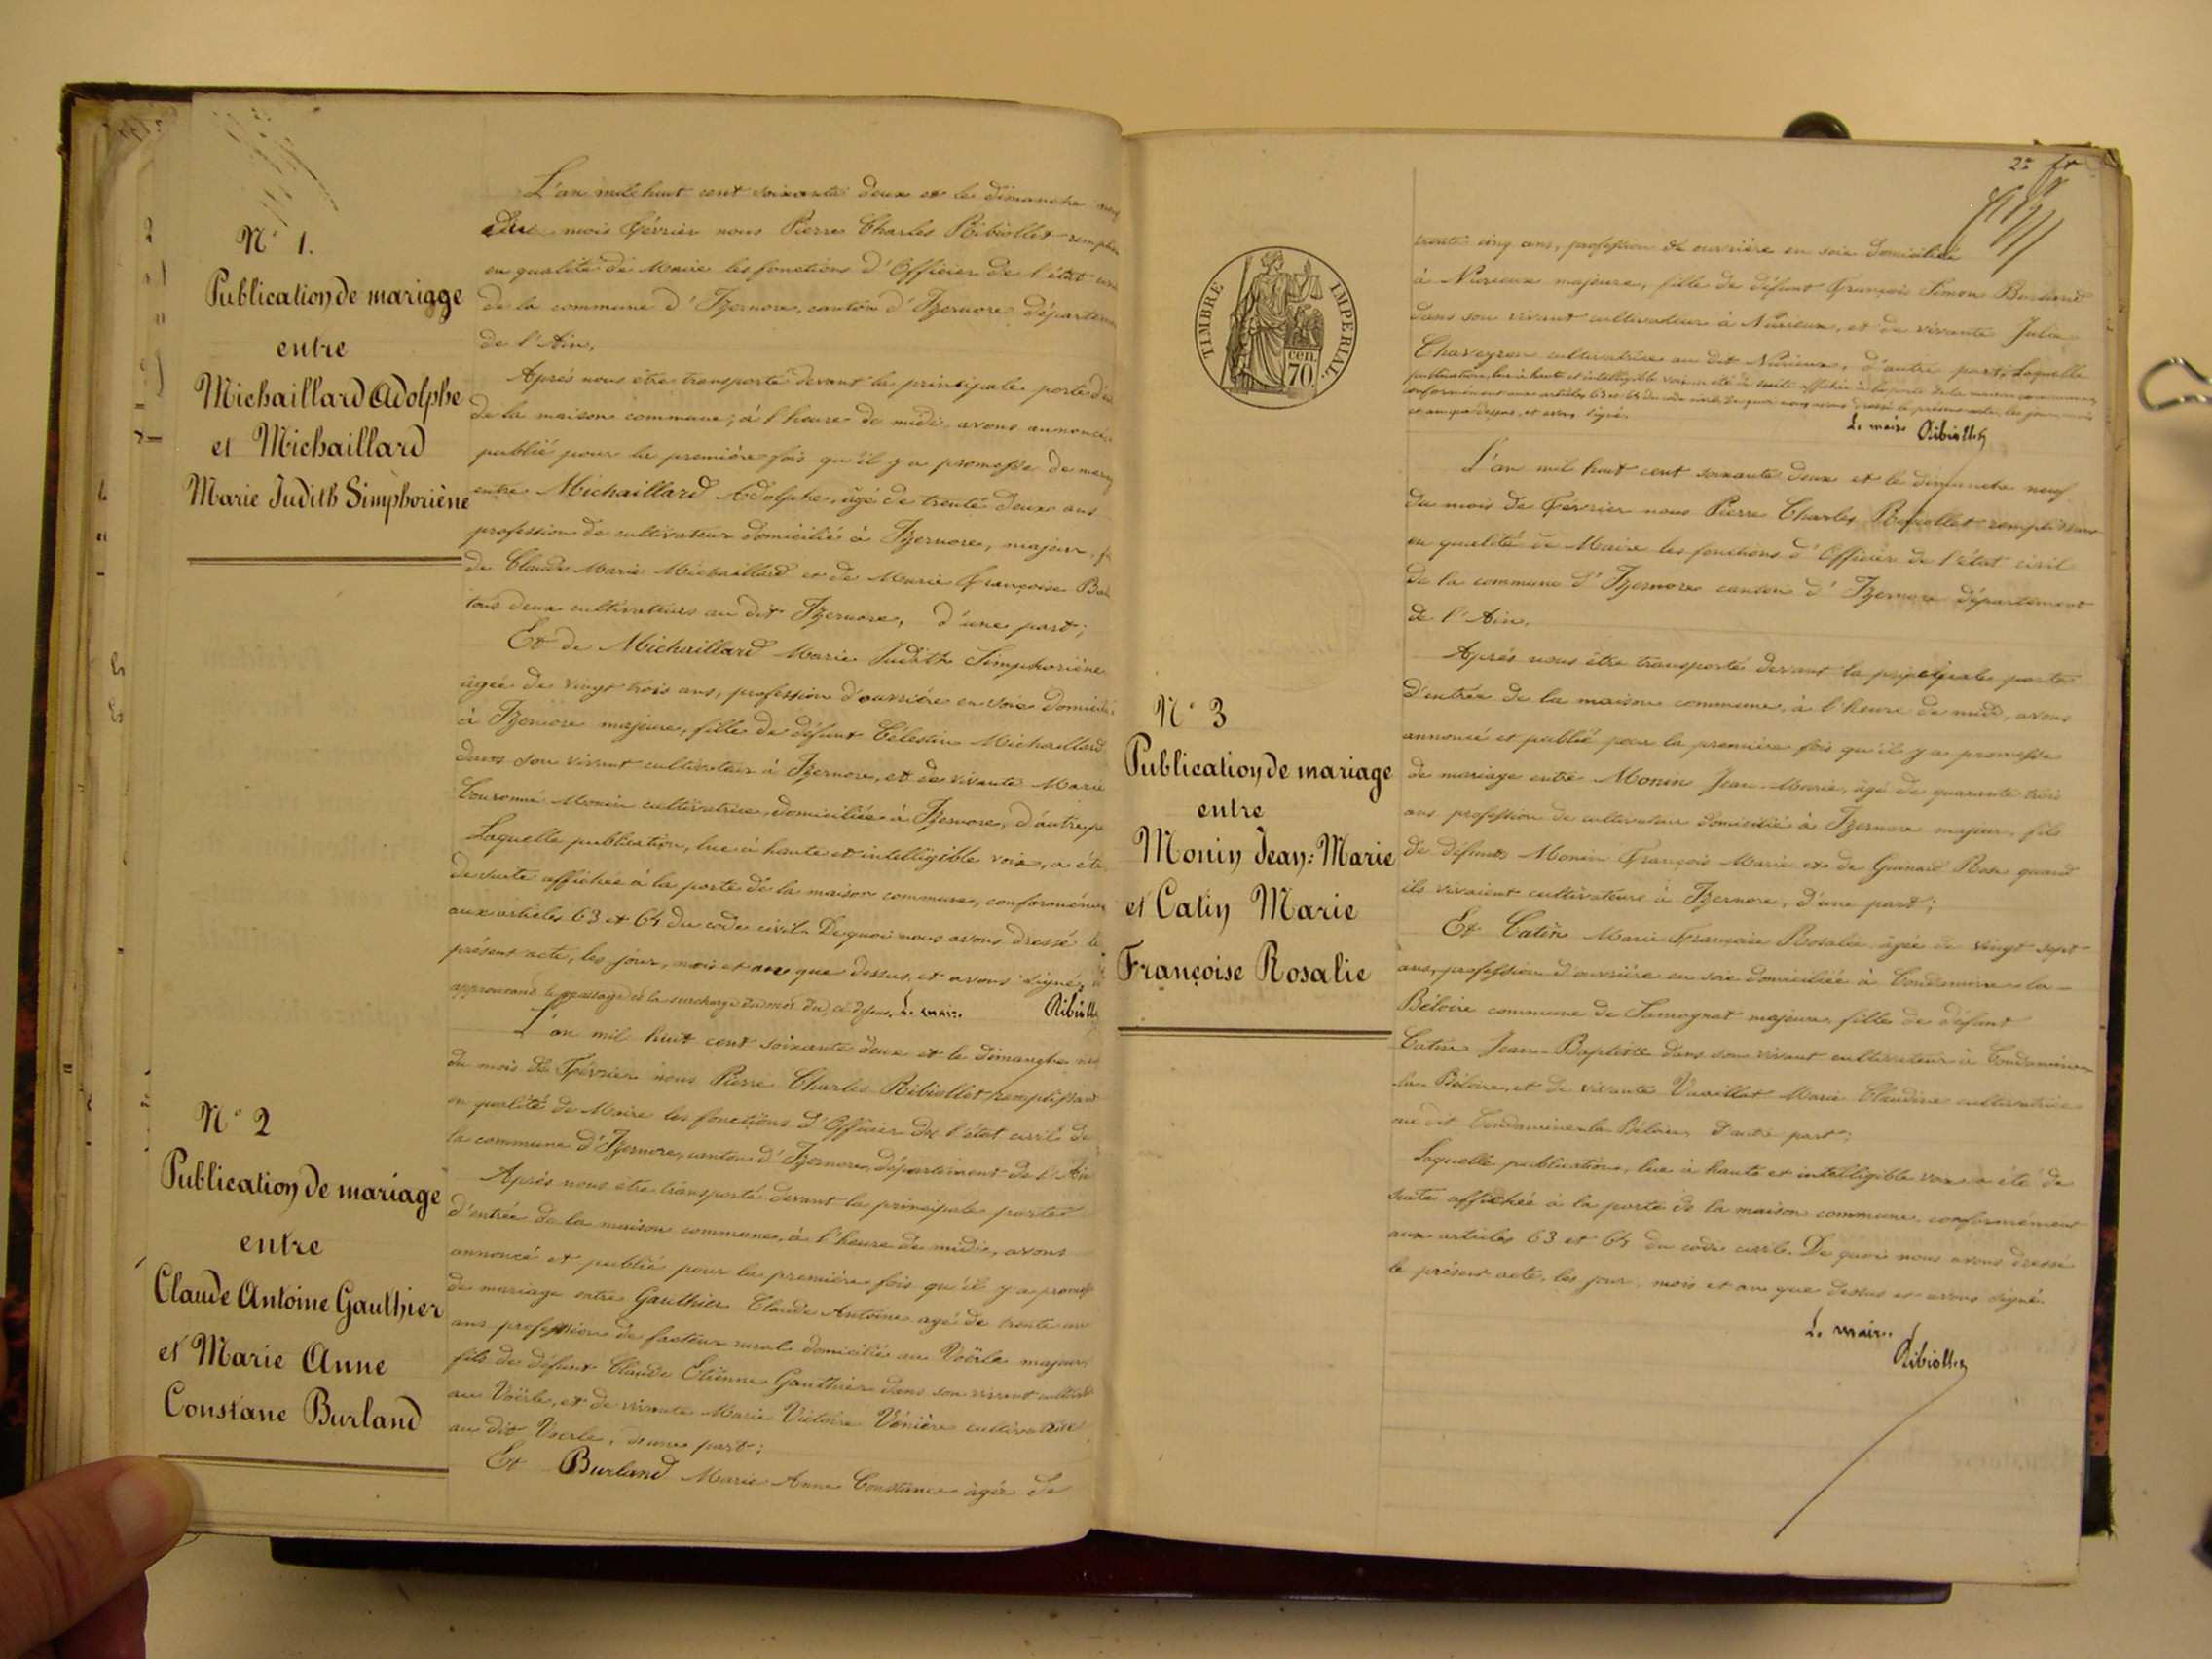 N° 1.
Publication de mariage
entre
Michaillard Adolphe
et Michaillard
Marie Judith Simphoriène
L'an mil huit cent soixante deux et le dimanche neuf
du mois Février nous Pierre Charles Ribiollet
en qualité de Maire les fonctions d'Officier de l'état
de la commune d'Izernore, canton d'Izernore
de l'Ain,
Après nous être transporté devant la principale porte
de la maison commune, à l'heure de midi avons
publié pour la première fois qu'il y a promesse de
entre Michaillard Adolphe, âgé de trente deux ans
profession de cultivateur domicilié à Izernore, majeur,
de Claude Marie Michaillard et de Marie Françoise
tous deux cultivateurs au dit Izernore, d'une part;
Et de Michaillard Marie Judith Simphoriène
âgée de vingt trois ans, profession d'ouvrière en soie
à Izernore majeure, fille de défunt Célestin Michaillard
dans son vivant cultivateur à Izernore, et de vivante Marie
Couronné Monin cultivatrice, domiciliée à Izernore, d'autre
Laquelle publication, lue à haute et intelligible voix, a été
de suite affichée à la porte de la maison commune,
aux articles 63 et 64 du code civil. De quoi nous avons dressé le
présent acte, les jour, mois et an que dessus, et avons signé,
approuvant la surcharge du mot du, ci-dessus. Le maire Ribiollet
N° 2
Publication de mariage
entre
Claude Antoine Gauthier
et Marie Anne
Constane Burland
L'an mil huit cent soixante deux et le dimanche
du mois de Février nous Pierre Charles Ribiollet remplissant
en qualité de Maire les fonctions d'Officier de l'état civil de
la commune d'Izernore, canton d'Izernore, département de l'Ain
Après nous être transporté devant la principale porte
d'entrée de la maison commune, à l'heure de midi, avons
annoncé et publié pour la première fois qu'il y a
de mariage entre Gauthier Claude Antoine agé de trente
ans profession de facteur rural domicilié au Voërle majeur
fils de défunt Claude Etienne Gauthier dans son vivant
au Voërle, et de vivante Marie Victoire Vénière cultivatrice
au dit Voerle, d'une part;
Et Burland Marie Anne Constance âgée de
2e
trente cinq ans, profession de ouvrière en soie domiciliée
à Nurieux majeure, fille de défunt François Simon Burland
dans son vivant cultivateur à Nurieux, et de vivante Julie
Chaveyron cultivatrice au dit Nurieux, d'autre part; Laquelle
publication, lue à haute et intelligible voix a été de suite affichée à la porte de la maison commune
conformément aux articles 63 et 64 du code civil. De quoi nous avons dressé le présent acte, les jour, mois
et an que dessus, et avons signé.
Le maire Ribiollet
TIMBRE IMPERIAL.
cen.
70.
L'an mil huit cent soixante deux et le dimanche neuf
du mois de Février nous Pierre Charles Ribiollet remplissant
en qualité de Maire les fonctions d'Officier de l'état civil
de la commune d'Izernore canton d'Izernore département
de l'Ain,
N° 3
Publication de mariage
entre
Monin Jean=Marie
et Catin Marie
Françoise Rosalie
Après nous être transporté devant la principale porte
d'entrée de la maison commune, à l'heure de midi, avons
annoncé et publié pour la première fois qu'il y a promesse
de mariage entre Monin Jean-Marie, agé de quarante trois
ans profession de cultivateur domicilié à Izernore majeur, fils
de défunts Monin François Marie et de Guinard Rose quand
ils vivaient cultivateurs à Izernore, d'une part;
Et Catin Marie Françoise Rosalie âgée de vingt sept
ans, profession d'ouvrière en soie domiciliée à Condamine-la-
Béloire commune de Samognat majeure fille de défunt
Catin Jean-Baptiste dans son vivant cultivateur à Condamine
la-Béloire, et de vivante Vuaillat Marie Claudine cultivatrice
au dit Condamine-la-Béloire, d'autre part;
Laquelle publication, lue à haute et intelligible voix a été de
suite affichée à la porte de la maison commune, conformément
aux articles 63 et 64 du code civil. De quoi nous avons dressé
le présent acte, les jour, mois et an que dessus et avons signé
Le maire
Ribiollet